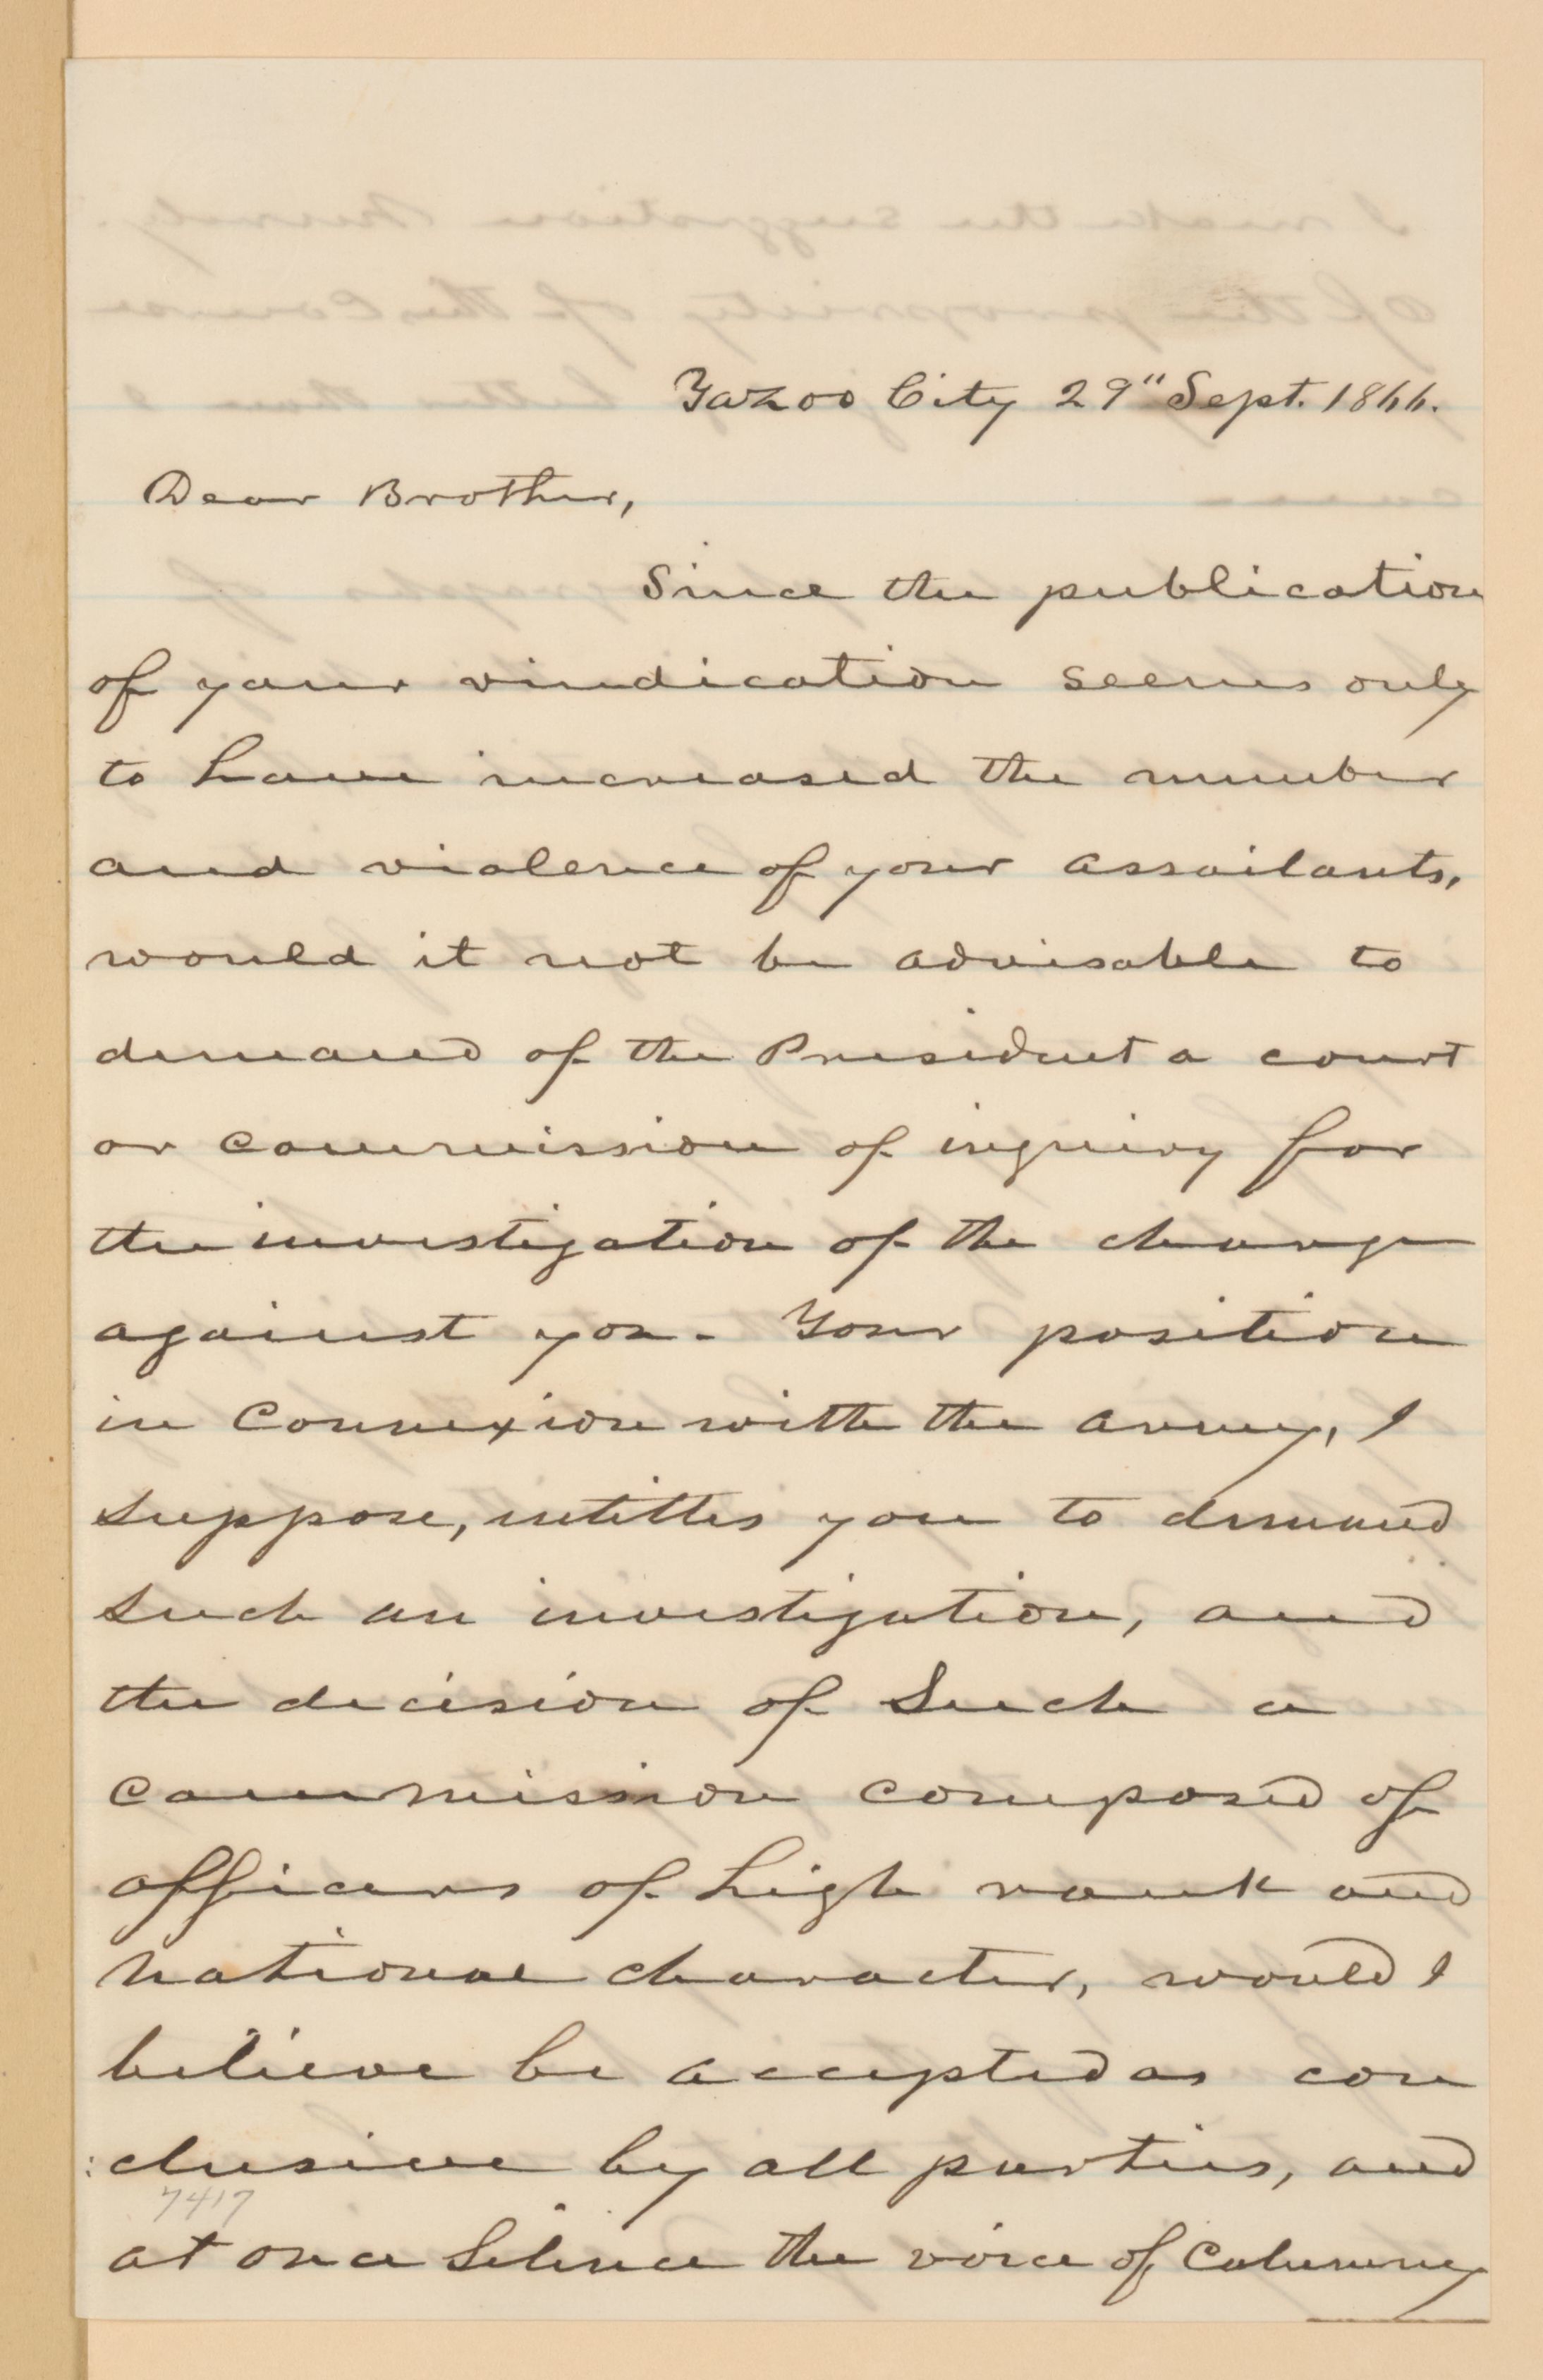 Yazoo City 29" Sept. 1866.
Dear Brother,
Since the publication
of your vindication seems only
to have increased the number
and violence of your assailants,
would it not be advisable to
demand of the President a court
or commission of inquiry for
the investigation of the charge
against you. Your position
in Connexion with the army, I
suppose, intitles you to demand
such an investigation, and
the decision of such a
commission composed of
officers of high rank and
national character, would I
believe be accepted as con
:clusive by all parties, and
7417
at once silence the voice of Calumny